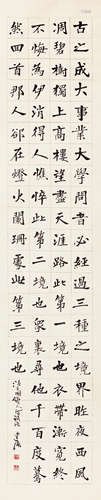 古之成大事業大學問者必經過三種之境界昨夜西風
凋碧樹獨上高樓望盡天涯路此第一境也衣帶漸寬終
不悔為伊消得人憔悴此第二境也衆裏尋他千百度驀
然回首那人卻在燈火闌珊處此第三境也